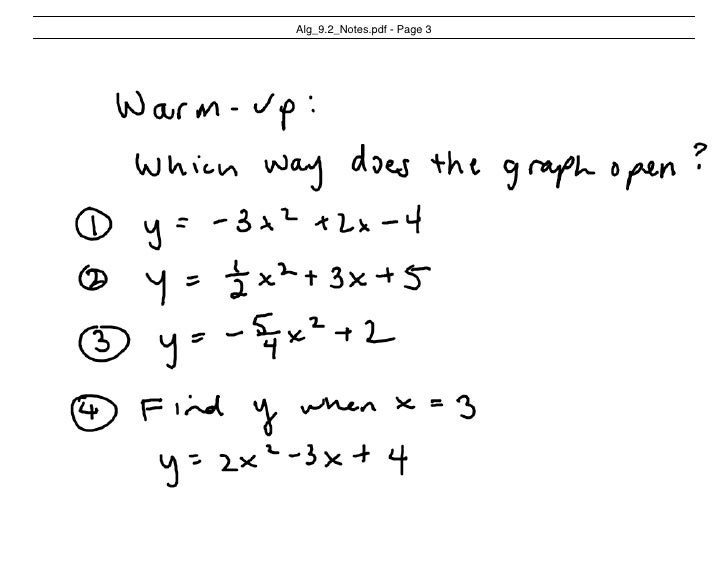 Alg_9.2_Notes.pdf - Page 3
Warm-up:
Which way does the graph open?
① y = -3x² + 2x - 4
② y = ½x² + 3x + 5
③ y = -5/4x² + 2
④ Find y when x = 3
y = 2x² - 3x + 4